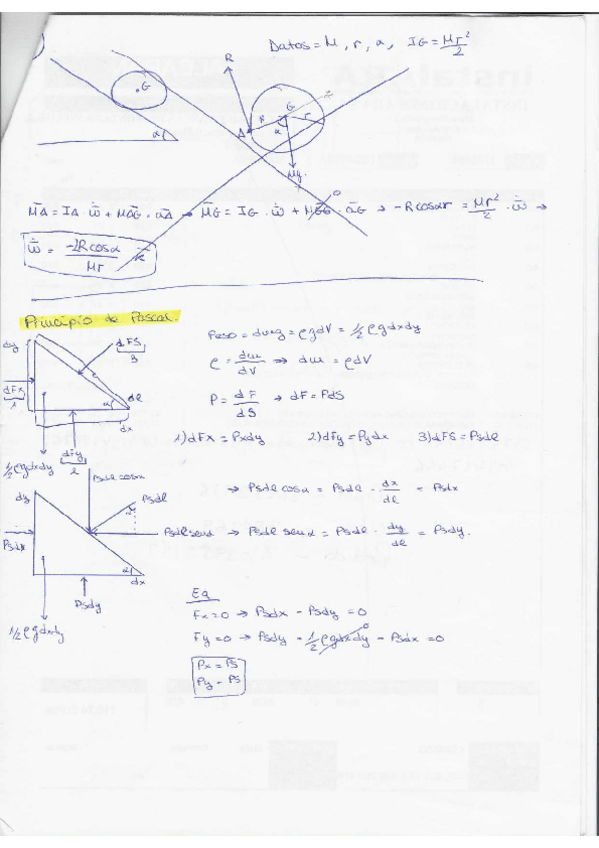 Datos = M, r, α, IG = Mr²/2
G
α
R
A
R
G
r
α
Mg
M̄A = IA · ω̄̇ + MĀG · āA → M̄G = IG · ω̄̇ + MḠG · āG → -Rcosαr = Mr²/2 · ω̄̇ →
0
ω̄̇ = -2Rcosα/Mr k̄
Principio de Pascal.
dy
dFS
3
dFx
1
α
dl
dx
dFy
2
1/2 ρgdxdy
Peso = dmg = ρgdV = 1/2 ρgdxdy
ρ = dm/dV → dm = ρdV
P = dF/dS → dF = PdS
1) dFx = Pxdy 2) dFy = Pydx 3) dFS = Psdl
Psdl cosα
dy
Psdl
α
Psdl senα
Psdx
α
dx
Psdy
1/2 ρgdxdy
→ Psdl cosα = Psdl · dx/dl = Psdx
→ Psdl senα = Psdl · dy/dl = Psdy.
Eq
Fx=0 → Psdx - Psdy = 0
Fy=0 → Psdy - 1/2 ρgdxdy - Psdx = 0
0
Px = Ps
Py = Ps